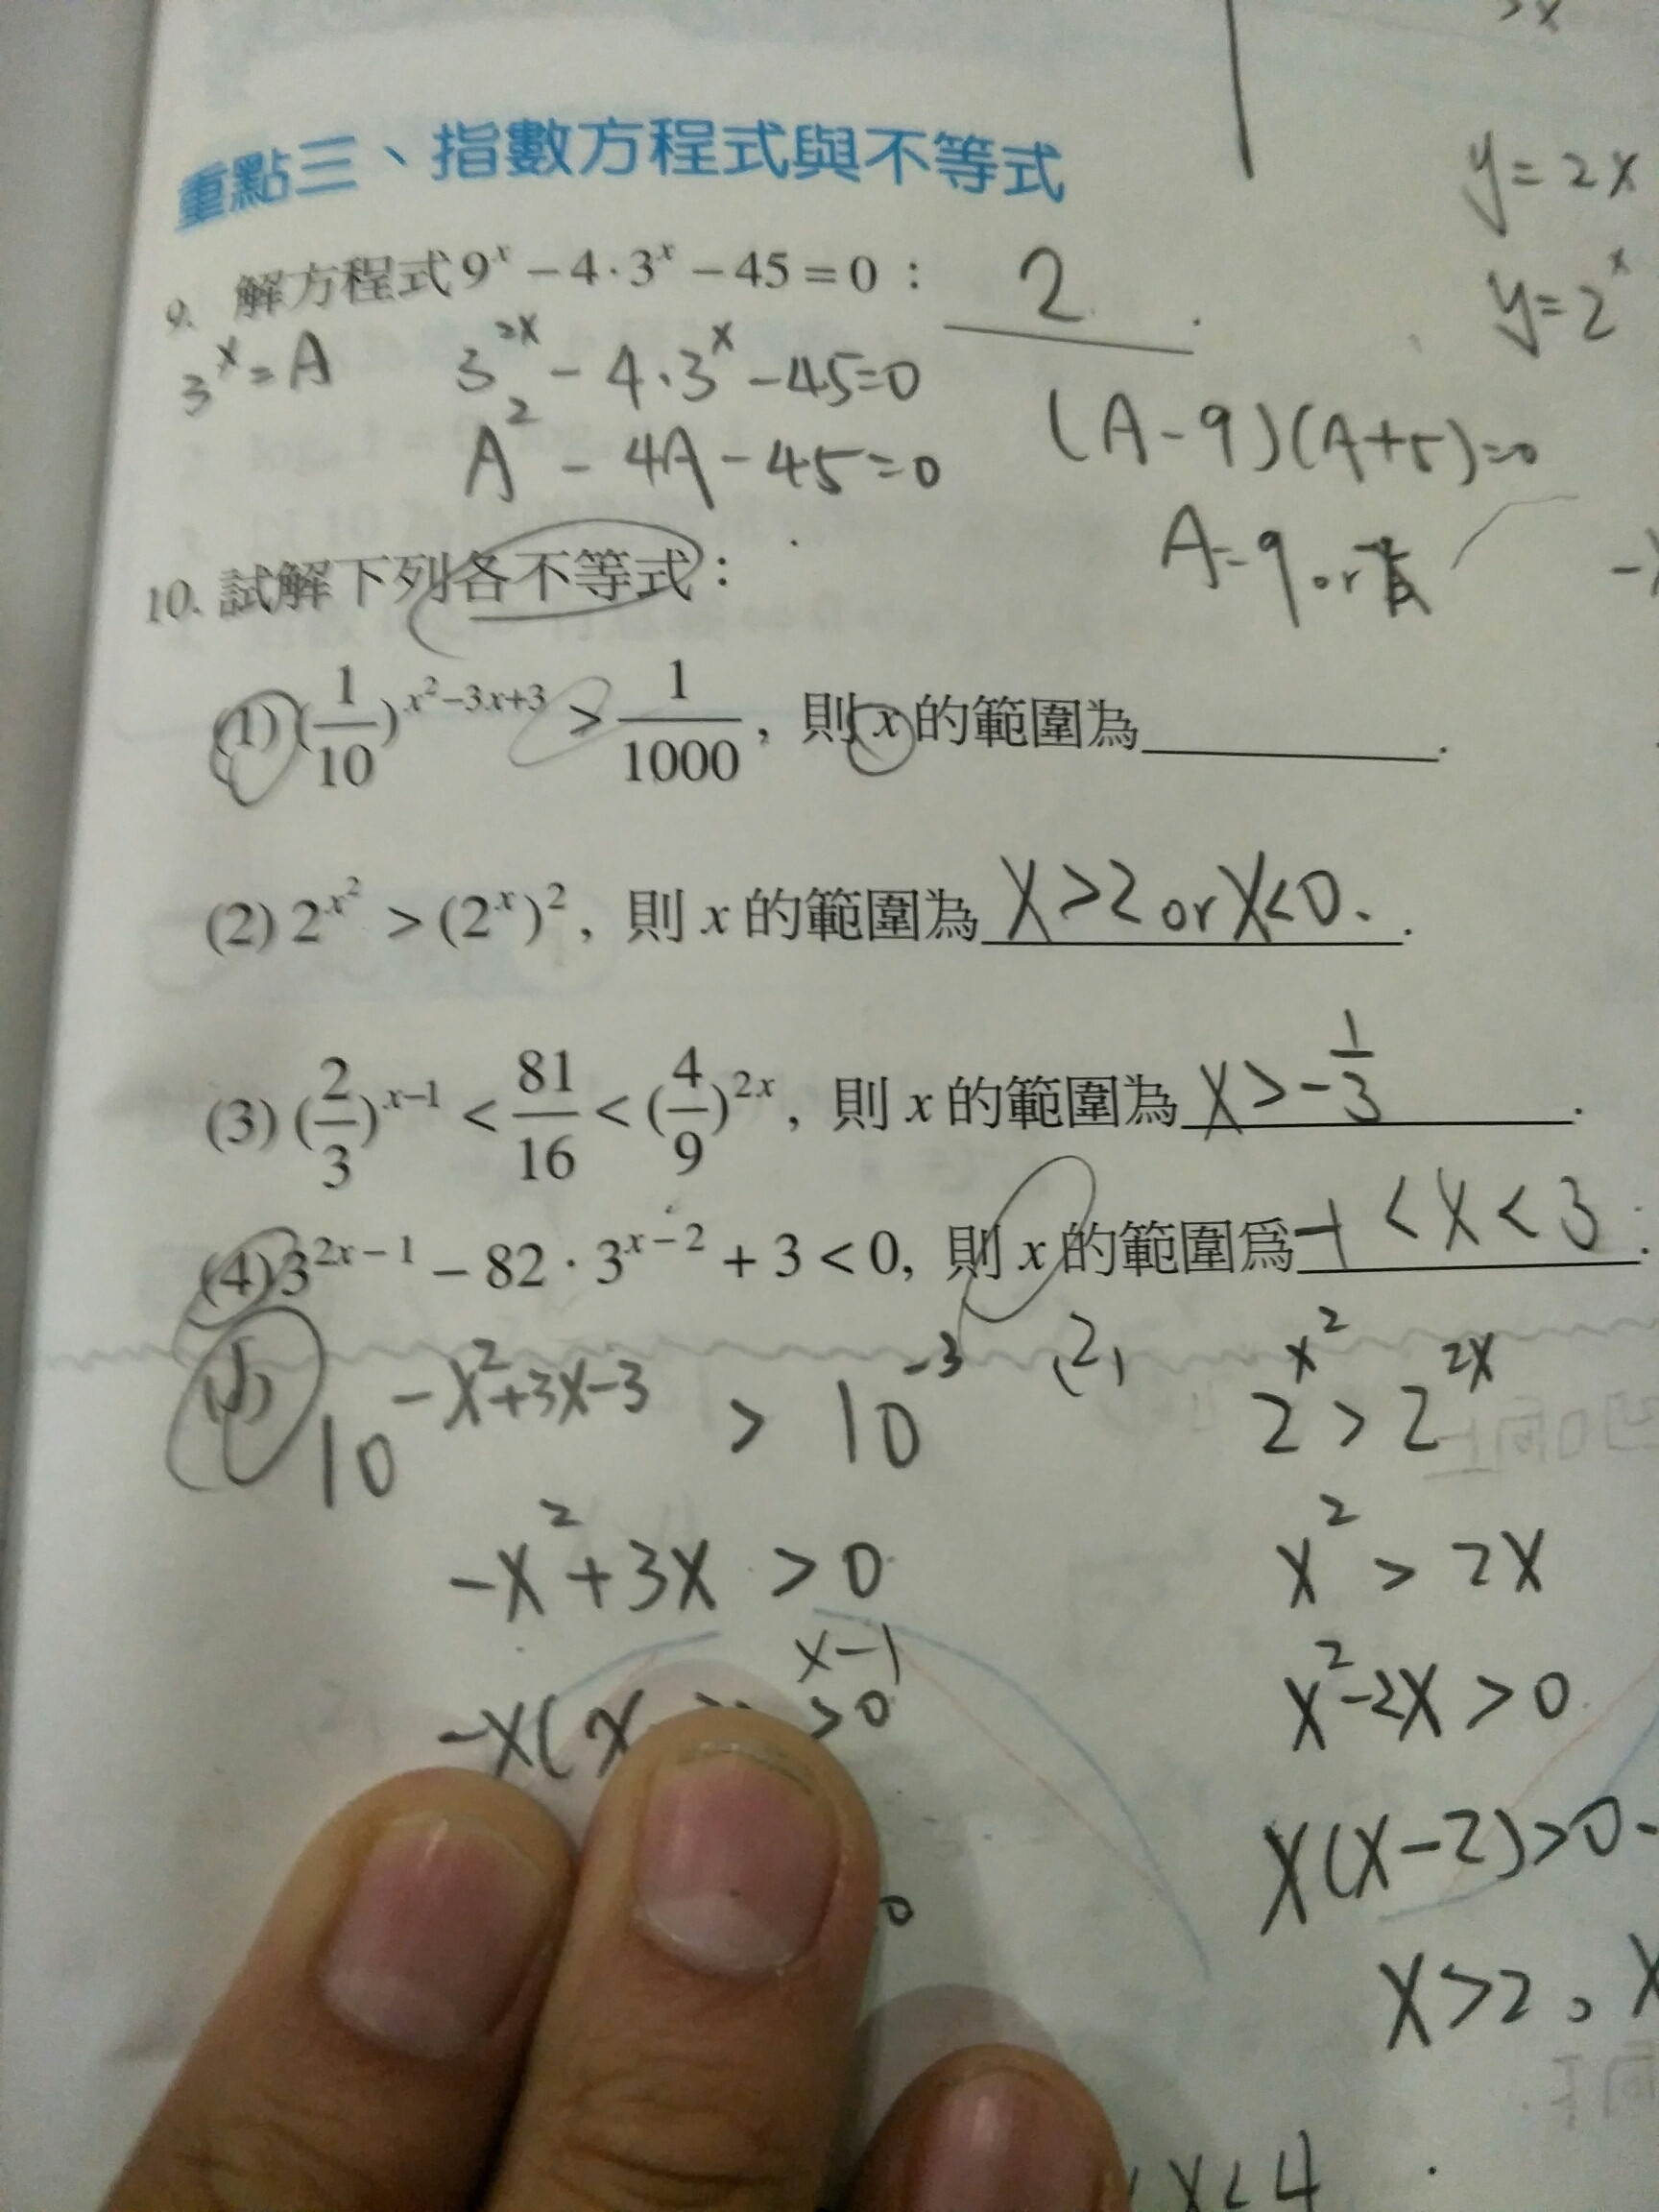 >x
重點三、指數方程式與不等式
y=2x
9. 解方程式 9^x－4·3^x－45＝0： 2 .
y=2^x
3^x=A 3^{2x}-4·3^x-45=0
A^2-4A-45=0 (A-9)(A+5)=0
A=9 or
10. 試解下列各不等式：
(1) (1/10)^{x^2－3x+3} > 1/1000, 則 x 的範圍為 .
(2) 2^{x^2} > (2^x)^2, 則 x 的範圍為 x>2 or x<0.
(3) (2/3)^{x–1} < 81/16 < (4/9)^{2x}, 則 x 的範圍為 x>-1/3 .
(4) 3^{2x－1}－82·3^{x－2}＋3<0, 則 x 的範圍為 -1<x<3 .
(1) 10^{-x^2+3x-3} > 10^{-3}
-x^2+3x>0
x-1
-x(x >0
(2) 2^{x^2}>2^{2x}
x^2>2x
x^2-2x>0
x(x-2)>0
x>2, x
x<4